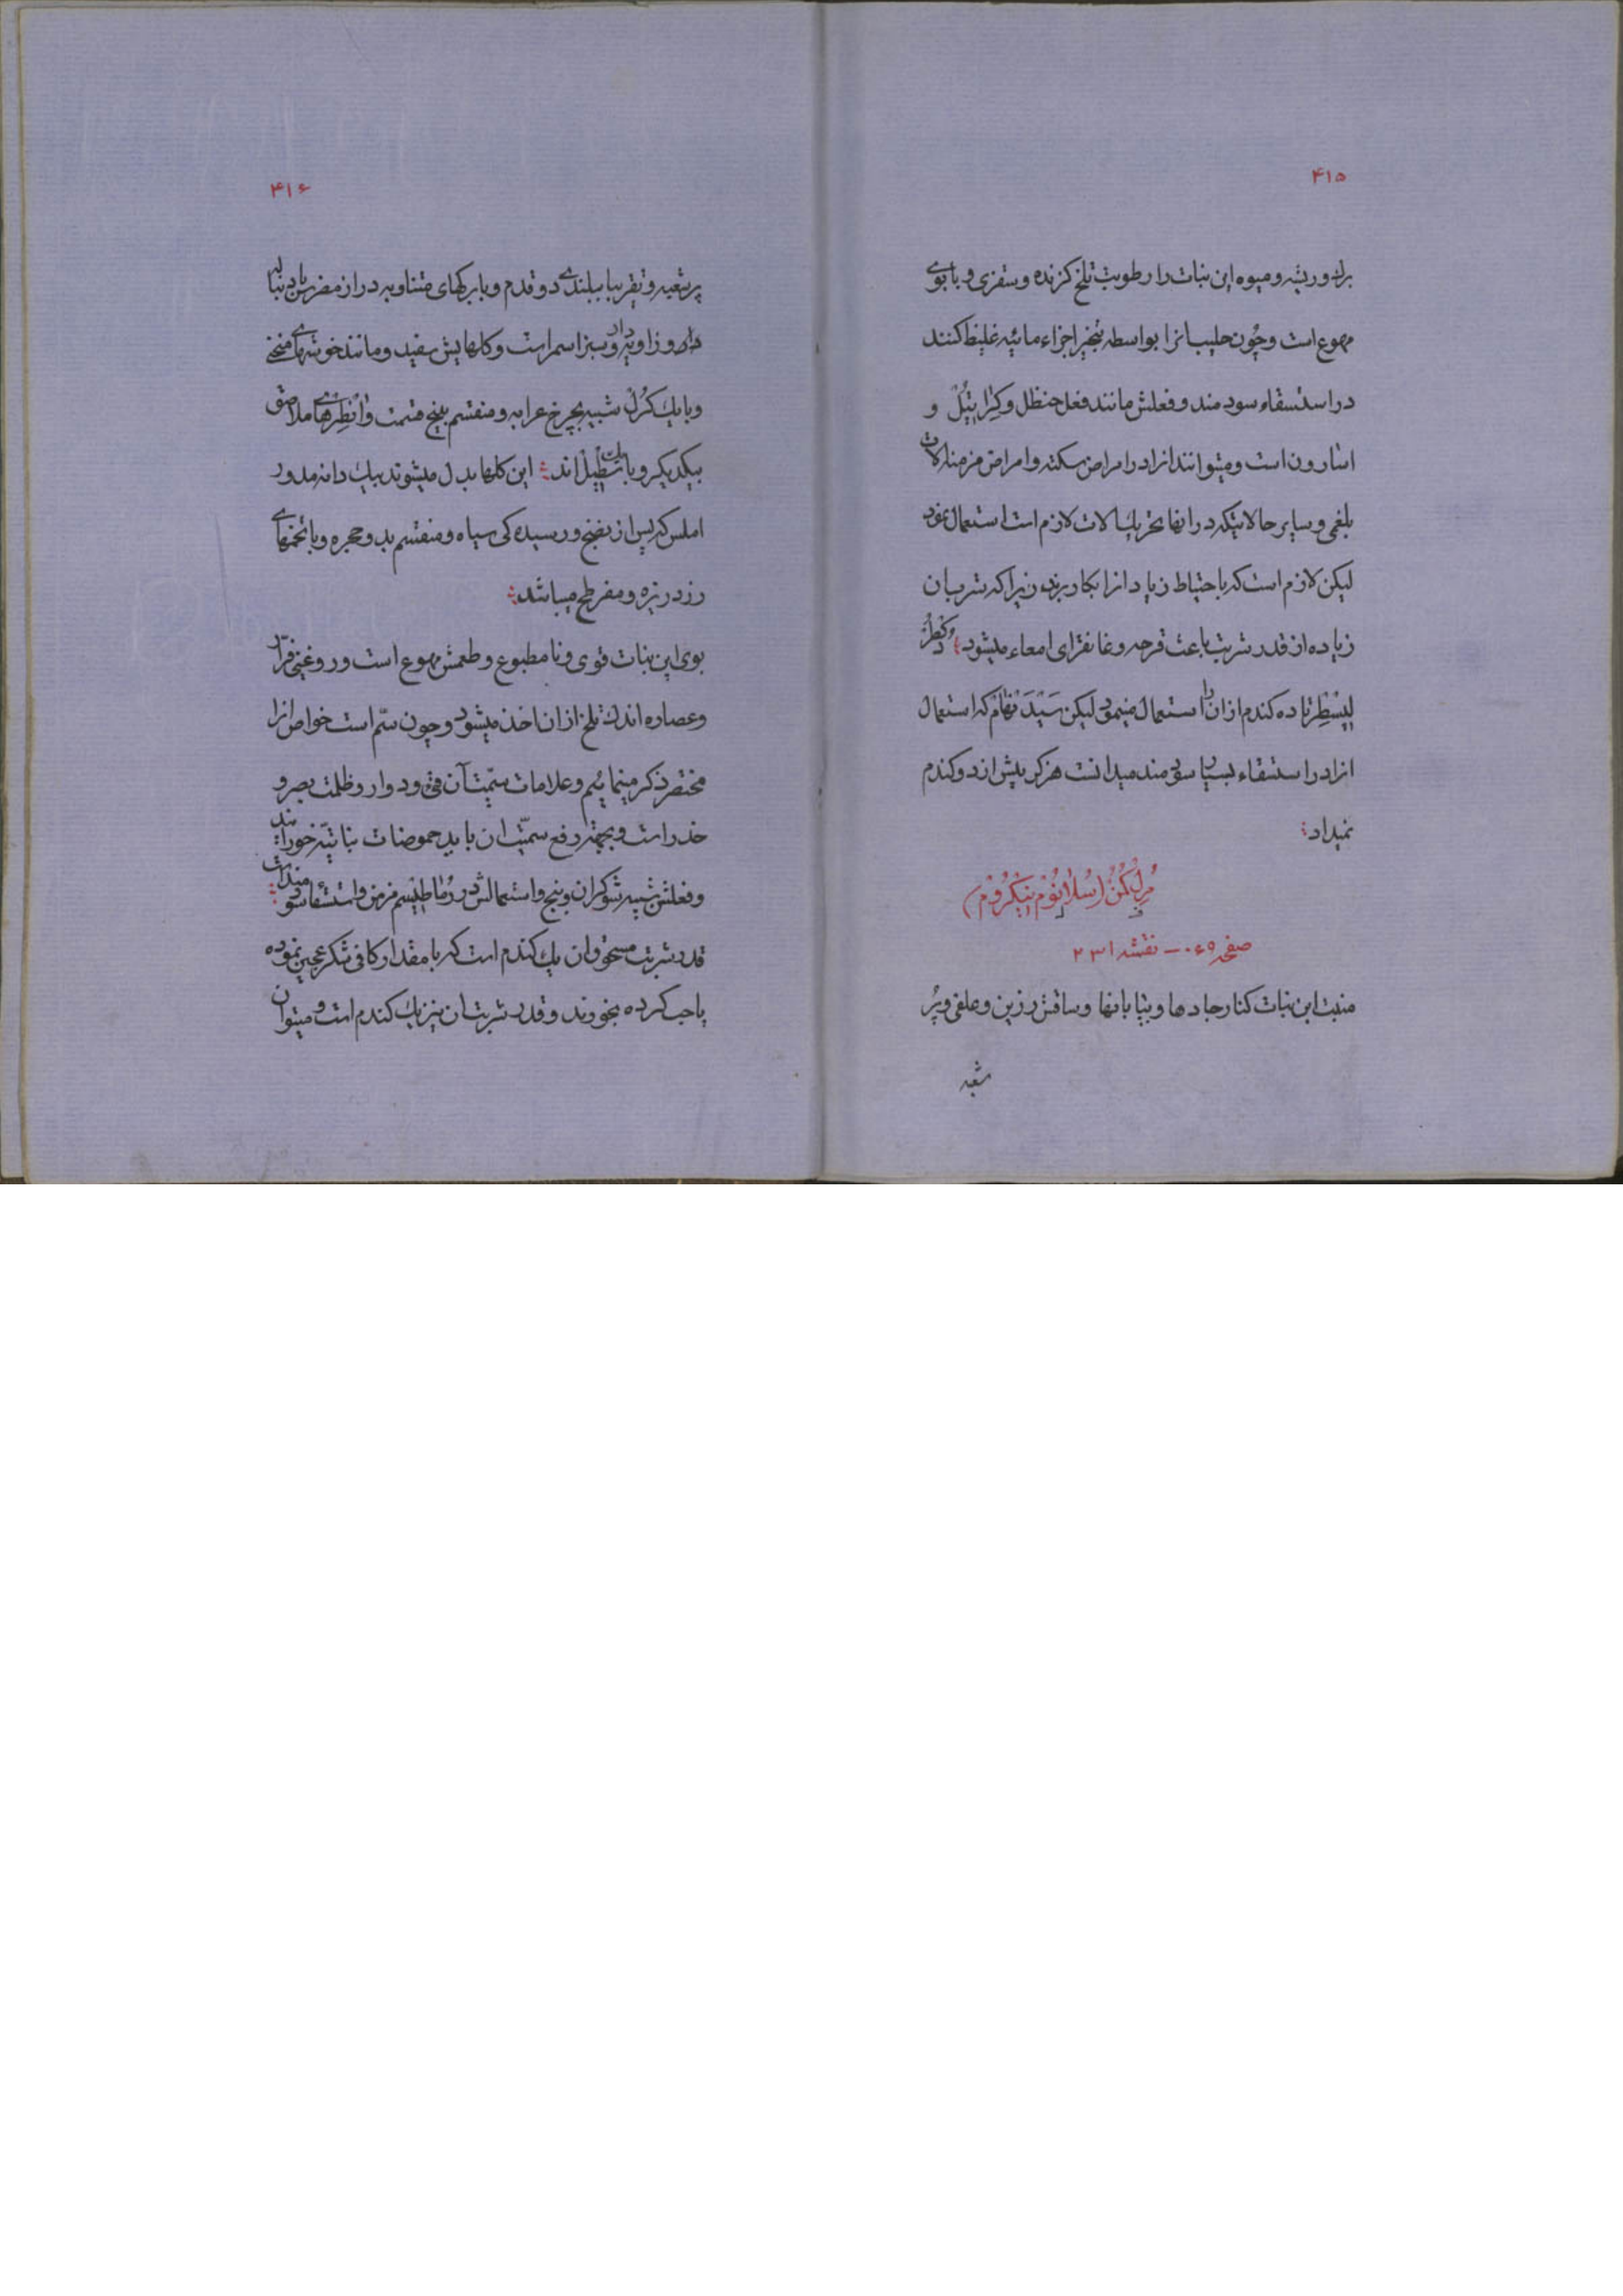 ۴۱۵
برك و ریشه و میوه این نبات را رطوبت تلخ کزنده و سقزی و با بوی
مهوع است و چون حلیب انرا بواسطه تبخیر اجزاء مائیه غلیظ کنند
در استسقاء سود مند و فعلش مانند فعل حنظل و کراتیُل و
اسارون است و میتوانند انرا در امراض سکته و امراض مزمنه آلات
بلغمی و سایر حالاتیکه در انها تحریك آلات لازم است استعمال نمود
لیکن لازم است که با احتیاط زیاد انرا بکار برند زیرا که شرب ان
زیاده از قدر شربت باعث قرحه و غانقرای امعاء میشود دکطر
لیسطر تا ده کندم از ان را استعمال مینمود لیکن سیدنهام که استعمال
انرا در استسقاء بسیار سود مند میدانست هرکز بیش از دو کندم
نمیداد
مُرلکن (سُلانوُم نیکروُم)
صفحه ۰۶۵ – نقشه ۲۳۱
منبت این نبات کنار جاده ها و بیابانها و ساقش رزین و علفی و پُر
شعبه
۴۱۶
پر شعبه و تقریبا ببلندی دو قدم و با برکهای متناوبه دراز مضرس با دنباله
دار و زاویه دار و سبز اسمر است و کلهایش سفید و مانند خوشهای منحنی
و با یك کرُل شبیه بچرخ عرابه و منقسم بپنج قسمت و انطرهای ملاصق
بیکدیکر و با یك سطیل اند این کلها بدل میشوند بیك دانه مدور
املس که پس از نضج و رسیده کی سیاه و منقسم بدو حجره و با تخمهای
زرد ریزه و مفرطح میباشد
بوی این نبات قوی و نا مطبوع و طعمش مهوع است و روغنی فرّار
و عصاره اندك تلخ از ان اخذ میشود و چون سمّ است خواص انرا
مختصر ذکر مینمائیم و علامات سمّیت آن قی و دوار و ظلمت بصر و
خدر است و بجهة رفع سمّیت ان باید حموضات نباتیّه خورانند
و فعلش شبیه شوکران و بنج و استعمالش در رُماطیسم مزمن و استسقا سودمند است
قدر شربت مسحوق ان یك کندم است که با مقدار کافی شکر عجین نموده
یا حب کرده بخورند و قدر شربت ان نیز یك کندم است و میتوان